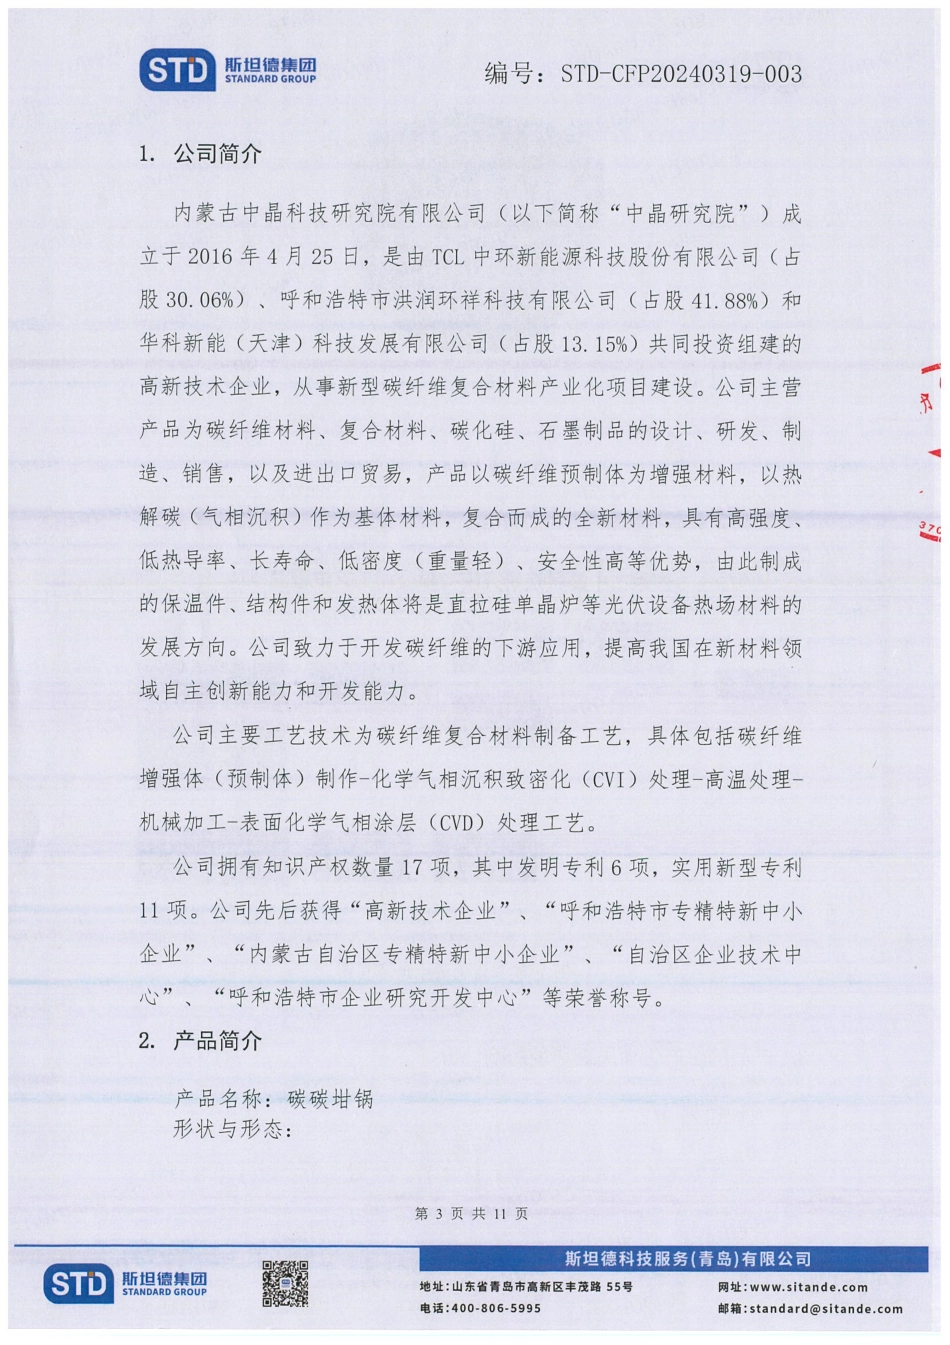 STD 斯坦德集团
STANDARD GROUP
编号：STD-CFP20240319-003
1. 公司简介
内蒙古中晶科技研究院有限公司（以下简称“中晶研究院”）成
立于 2016 年 4 月 25 日，是由 TCL 中环新能源科技股份有限公司（占
股 30.06%）、呼和浩特市洪润环祥科技有限公司（占股 41.88%）和
华科新能（天津）科技发展有限公司（占股 13.15%）共同投资组建的
高新技术企业，从事新型碳纤维复合材料产业化项目建设。公司主营
产品为碳纤维材料、复合材料、碳化硅、石墨制品的设计、研发、制
造、销售，以及进出口贸易，产品以碳纤维预制体为增强材料，以热
解碳（气相沉积）作为基体材料，复合而成的全新材料，具有高强度、
低热导率、长寿命、低密度（重量轻）、安全性高等优势，由此制成
的保温件、结构件和发热体将是直拉硅单晶炉等光伏设备热场材料的
发展方向。公司致力于开发碳纤维的下游应用，提高我国在新材料领
域自主创新能力和开发能力。
公司主要工艺技术为碳纤维复合材料制备工艺，具体包括碳纤维
增强体（预制体）制作-化学气相沉积致密化（CVI）处理-高温处理-
机械加工-表面化学气相涂层（CVD）处理工艺。
公司拥有知识产权数量 17 项，其中发明专利 6 项，实用新型专利
11 项。公司先后获得“高新技术企业”、“呼和浩特市专精特新中小
企业”、“内蒙古自治区专精特新中小企业”、“自治区企业技术中
心”、“呼和浩特市企业研究开发中心”等荣誉称号。
2. 产品简介
产品名称：碳碳坩锅
形状与形态：
第 3 页 共 11 页
斯坦德科技服务(青岛)有限公司
STD 斯坦德集团
STANDARD GROUP
地址：山东省青岛市高新区丰茂路 55号
网址：www.sitande.com
电话：400-806-5995
邮箱：standard@sitande.com
370